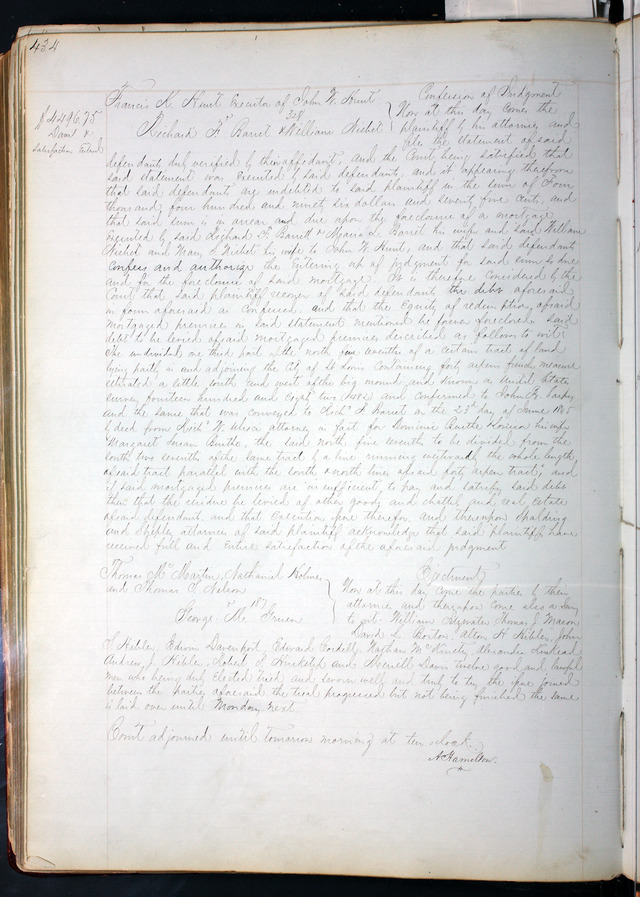 434
Francis K. Hunt Executor of John W. Hunt
$4496.75
Damt &
Satisfaction Entered
328
Richard F. Barret & William Nisbet
Confession of Judgment
Now at this day comes the
plaintiff by his attorney and
files the statement of said
defendants duly verified by their affidavit, and the Court being satisfied that
said statement was executed by said defendants, and it appearing therefrom
that said defendants are indebted to said plaintiff in the sum of Four
thousand four hundred and ninety six dollars and seventy five cents, and
that said sum is in arrear and due upon the foreclosure of a mortgage
executed by said Richard F. Barrett & Maria L. Barret his wife and said William
Nisbet and Mary J. Nisbet his wife to John W. Hunt, and that said defendants
confess and authorize the entering up of judgment for said sum so due
and for the foreclosure of said mortgage. It is therefore considered by the
Court that said plaintiff recover of said defendants the debt aforesaid
in form aforesaid as confessed, and that the Equity of redemption aforesaid
mortgaged premises in said statement mentioned be forever foreclosed said
debt to be levied aforesaid mortgaged premises described as follows to wit:
The undivided one third part of the north five sevenths of a certain tract of land
lying partly in and adjoining the City of St. Louis containing forty arpens french measure
situated a little north and west of the big mound and known as United States
survey fourteen hundred and eighty two (1482) and confirmed to John F.
and the same that was conveyed to Rich. F. Barret on the 23d day of June 1845
by deed from attorney in fact for his wife
Margaret Susan the said north five sevenths to be divided from the
south two sevenths of the same tract by a line running westwardly the whole length
aforesaid tract parallel with the south & north lines of said forty arpen tract, and
if said mortgaged premises are insufficient to pay and satisfy said debt
then that the residue be levied of other goods and chattels and real estate
aforesaid defendants and that execution issue therefor, and thereupon Spalding
and Shepley attornies of said plaintiff acknowledge that said plaintiffs have
received full and entire satisfaction of the aforesaid judgment
Thomas Mc Martin, Nathaniel Holmes
and Thomas S. Nelson
187
George M. Gruen
Ejectment
Now at this day come the parties by their
attornies and thereupon come also a Jury
to wit: William Thomas J. Mason
David L. Horton, Alton H. Kibby, John
S. Kibby, Edwin Davenport, Edward Cordell, Nathan Mc Kinely, Alexander Lockhead
Andrew J. Kibbe, Robert S. Huckelps and Merrell Davis twelve good and lawful
men who being duly elected tried and sworn well and truly to try the issue joined
between the parties aforesaid the trial progressed but not being finished the same
is laid over until Monday next
Court adjourned until tomorrow morning at ten o'clock.
A. Hamilton.